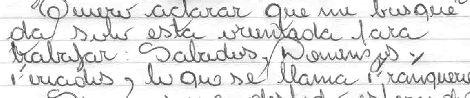 Quiero aclarar que mi busque
da solo esta orientada para
trabajar: Sabados, Domingos y
Feriados, lo que se llama Franquero